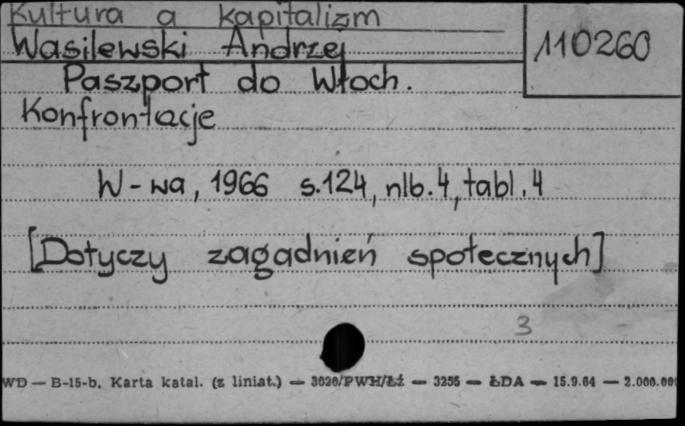 Kultura a kapitalizm
Wasilewski Andrzej
110260
Paszport do Włoch.
Konfrontacje
W-wa, 1966 s.124, nlb.4, tabl.4
[Dotyczy zagadnień społecznych]
3
WD — B-15-b. Karta katal. (z liniat.) — 3020/PWH/Łź — 3256 — ŁDA — 15.9.64 — 2.000.000